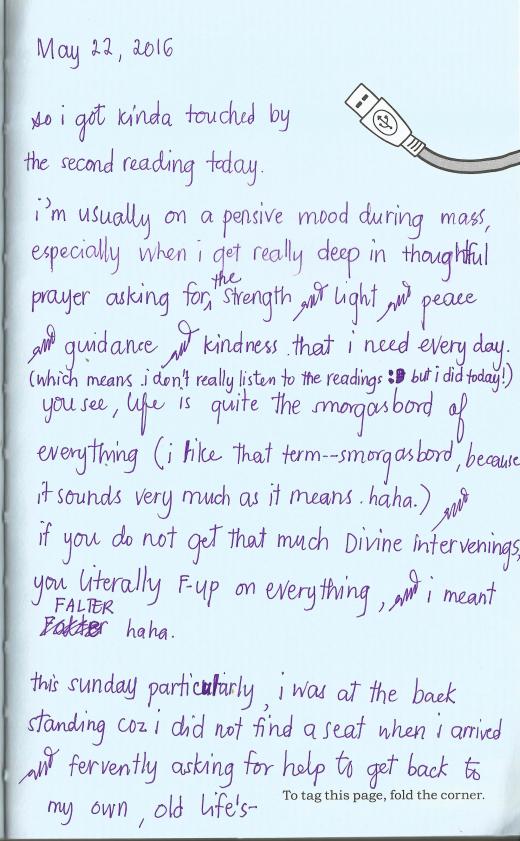 May 22, 2016
so i got kinda touched by
the second reading today.
i'm usually on a pensive mood during mass,
especially when i get really deep in thoughtful
prayer asking for, the strength and light and peace
and guidance and kindness that i need every day.
(which means i don't really listen to the readings :D but i did today!)
you see, life is quite the smorgasbord of
everything (i like that term--smorgasbord, because
it sounds very much as it means. haha.) and
if you do not get that much Divine intervenings,
you literally F-up on everything, and i meant
FALTER
haha.
this sunday particularly, i was at the back
standing coz i did not find a seat when i arrived
and fervently asking for help to get back to
my own, old life's-
To tag this page, fold the corner.